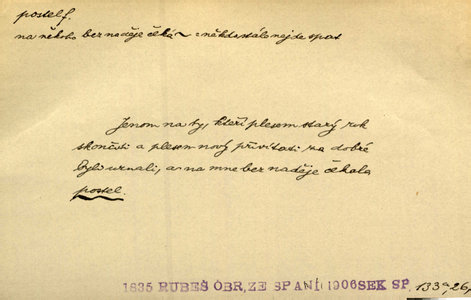 postel f.
na někoho bez naděje čeká a někdo stále nejde spat
Jenom na ty, kteří plesem starý rok
skončiti a plesem nový přivítati za dobré
byli uznali, a na mne bez naděje čekala
postel.
1835 RUBEŠ OBR, ZE SPANÍ 1906 SEK SP. 133a, 26,